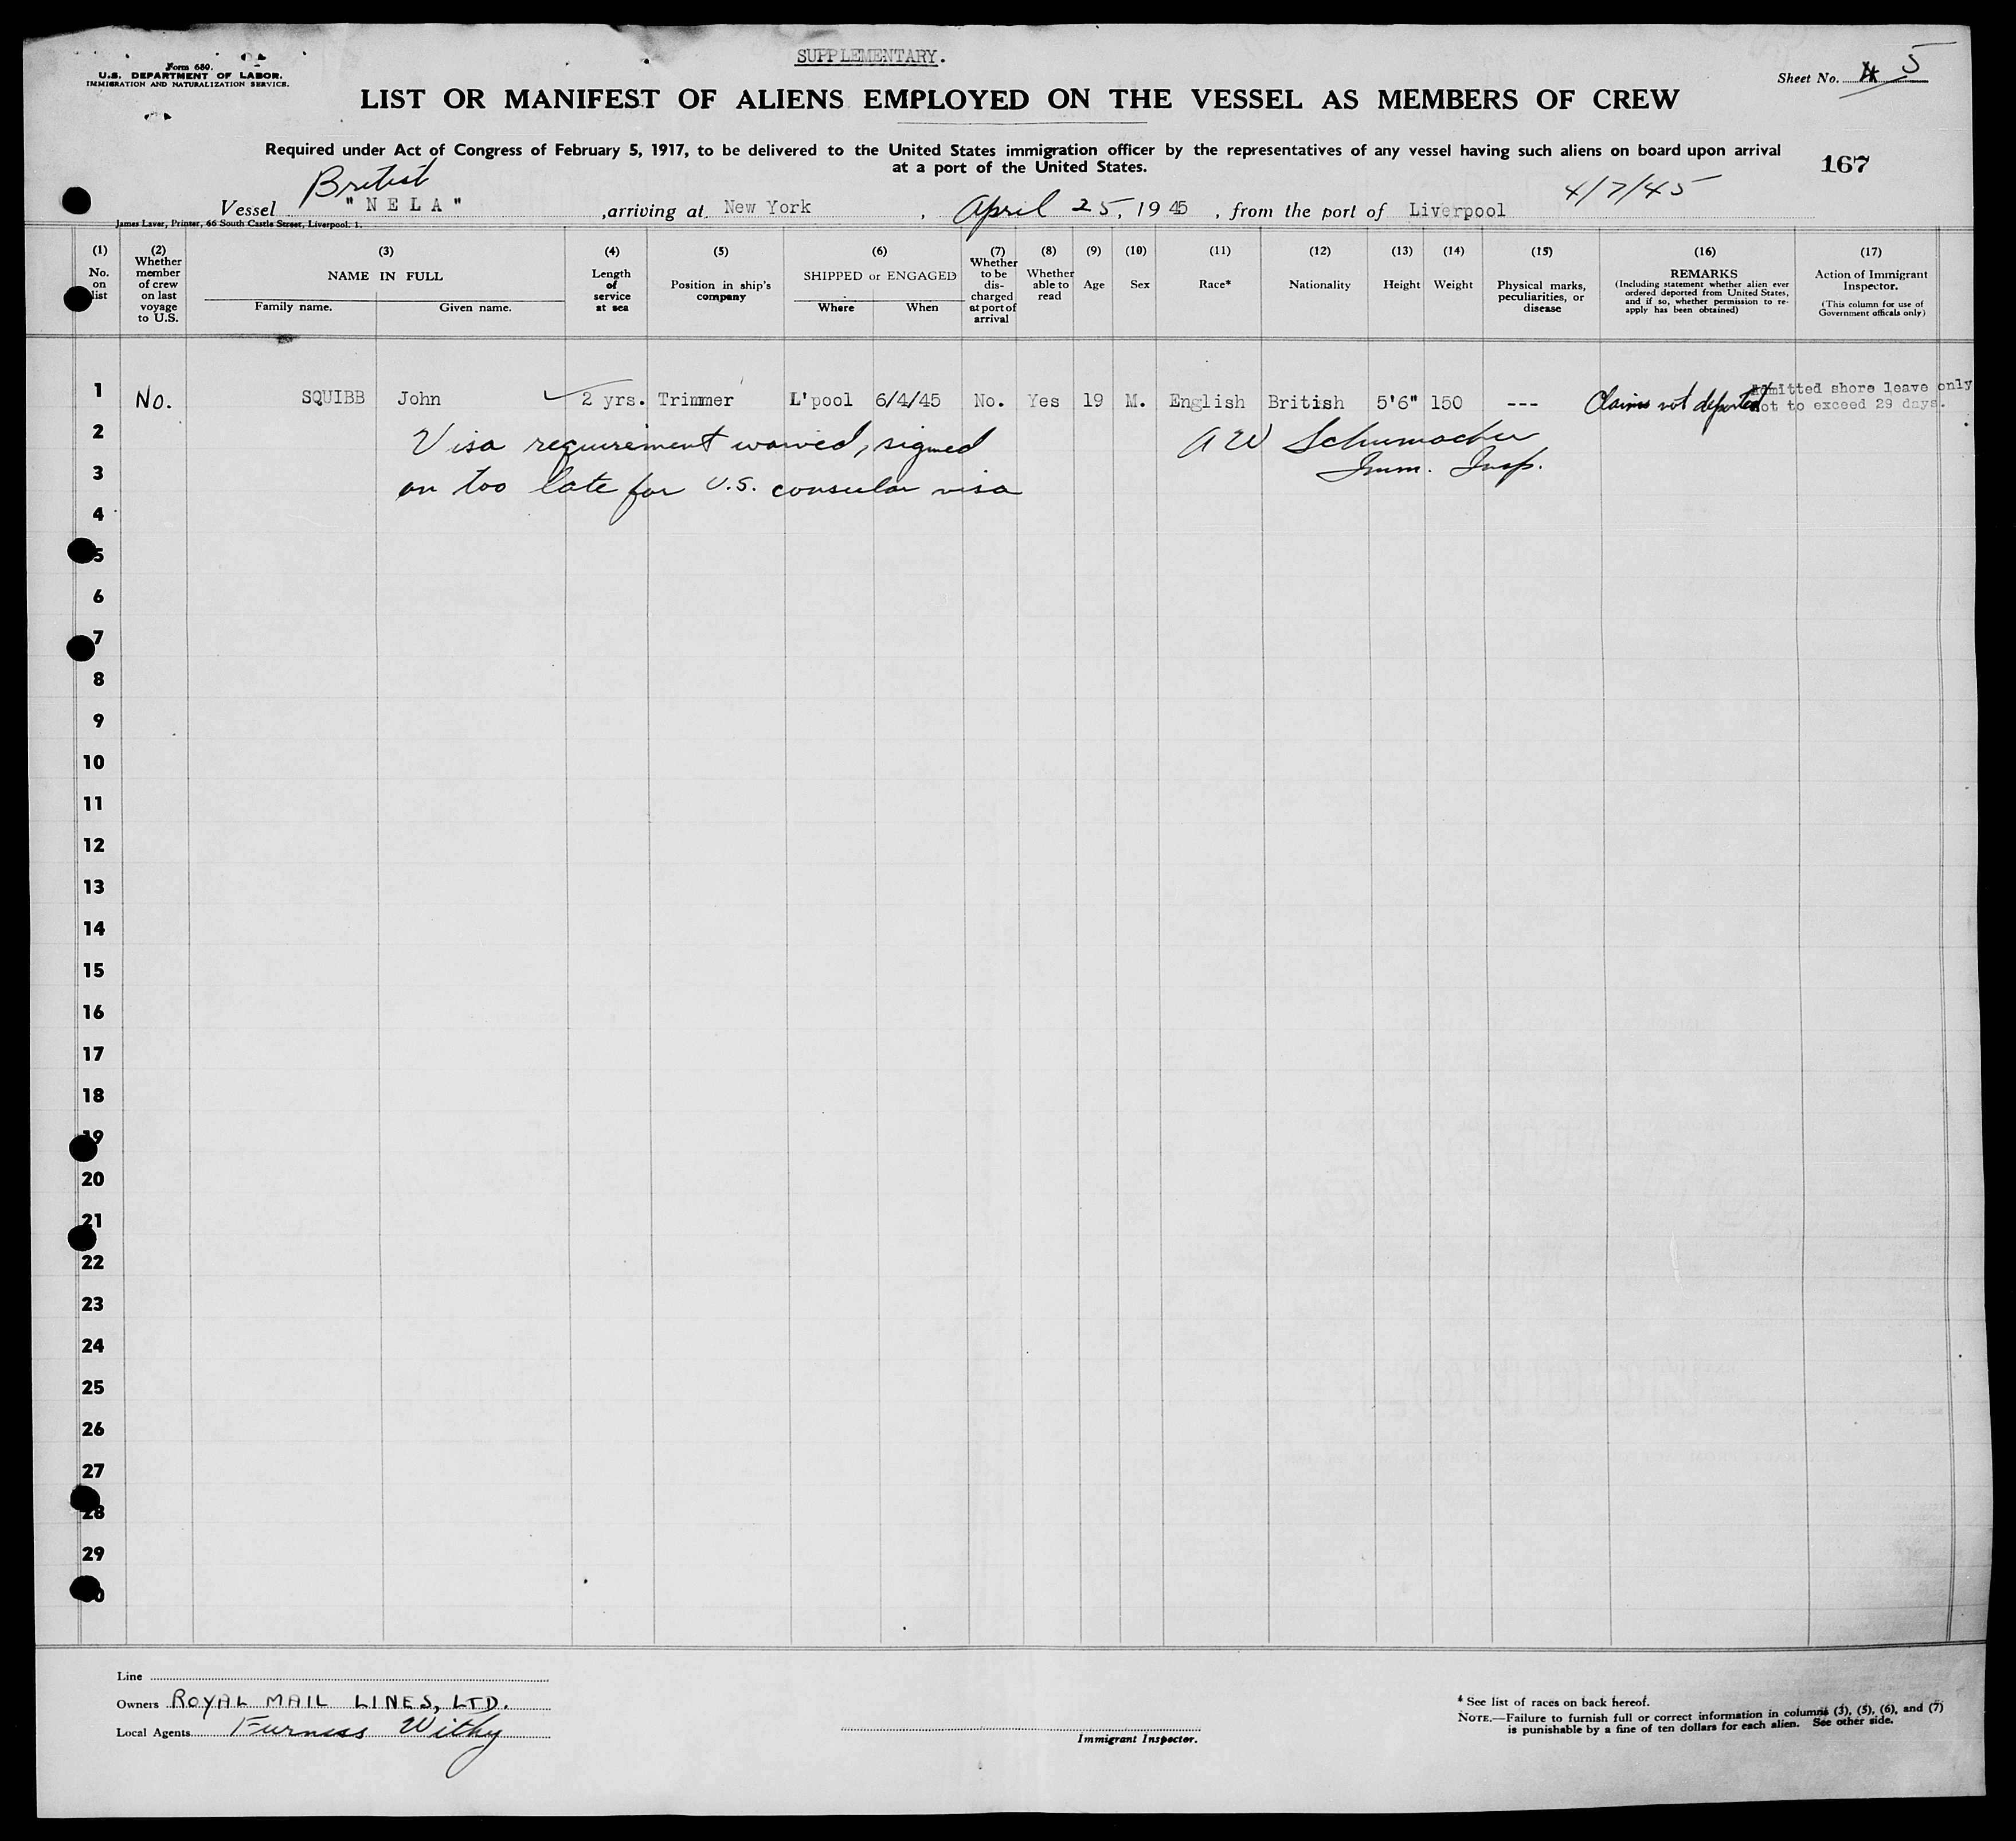 SUPPLEMENTARY.
Form 680.
U.S. DEPARTMENT OF LABOR.
IMMIGRATION AND NATURALIZATION SERVICE.
Sheet No. 5
LIST OR MANIFEST OF ALIENS EMPLOYED ON THE VESSEL AS MEMBERS OF CREW
Required under Act of Congress of February 5, 1917, to be delivered to the United States immigration officer by the representatives of any vessel having such aliens on board upon arrival
at a port of the United States.
167
British
4/7/45
Vessel "NELA" , arriving at New York , April 25, 1945 , from the port of Liverpool
James Laver, Printer, 66 South Castle Street, Liverpool. 1.
(1) No. on list
(2) Whether member of crew on last voyage to U.S.
(3) NAME IN FULL
Family name. Given name.
(4) Length of service at sea
(5) Position in ship's company
(6) SHIPPED or ENGAGED
Where When
(7) Whether to be discharged at port of arrival
(8) Whether able to read
(9) Age
(10) Sex
(11) Race*
(12) Nationality
(13) Height
(14) Weight
(15) Physical marks, peculiarities, or disease
(16) REMARKS
(Including statement whether alien ever ordered deported from United States, and if so, whether permission to re-apply has been obtained)
(17) Action of Immigrant Inspector.
(This column for use of Government officals only)
1 No. SQUIBB John 2 yrs. Trimmer L'pool 6/4/45 No. Yes 19 M. English British 5'6" 150 --- Claims not deported Admitted shore leave only
not to exceed 29 days.
2 Visa requirement waived, signed A W Schumacher
3 on too late for U.S. consular visa Imm. Insp.
4
5
6
7
8
9
10
11
12
13
14
15
16
17
18
19
20
21
22
23
24
25
26
27
28
29
30
Line
Owners ROYAL MAIL LINES, LTD.
Local Agents Furness Withy
Immigrant Inspector.
* See list of races on back hereof.
NOTE.—Failure to furnish full or correct information in columns (3), (5), (6), and (7)
is punishable by a fine of ten dollars for each alien. See other side.